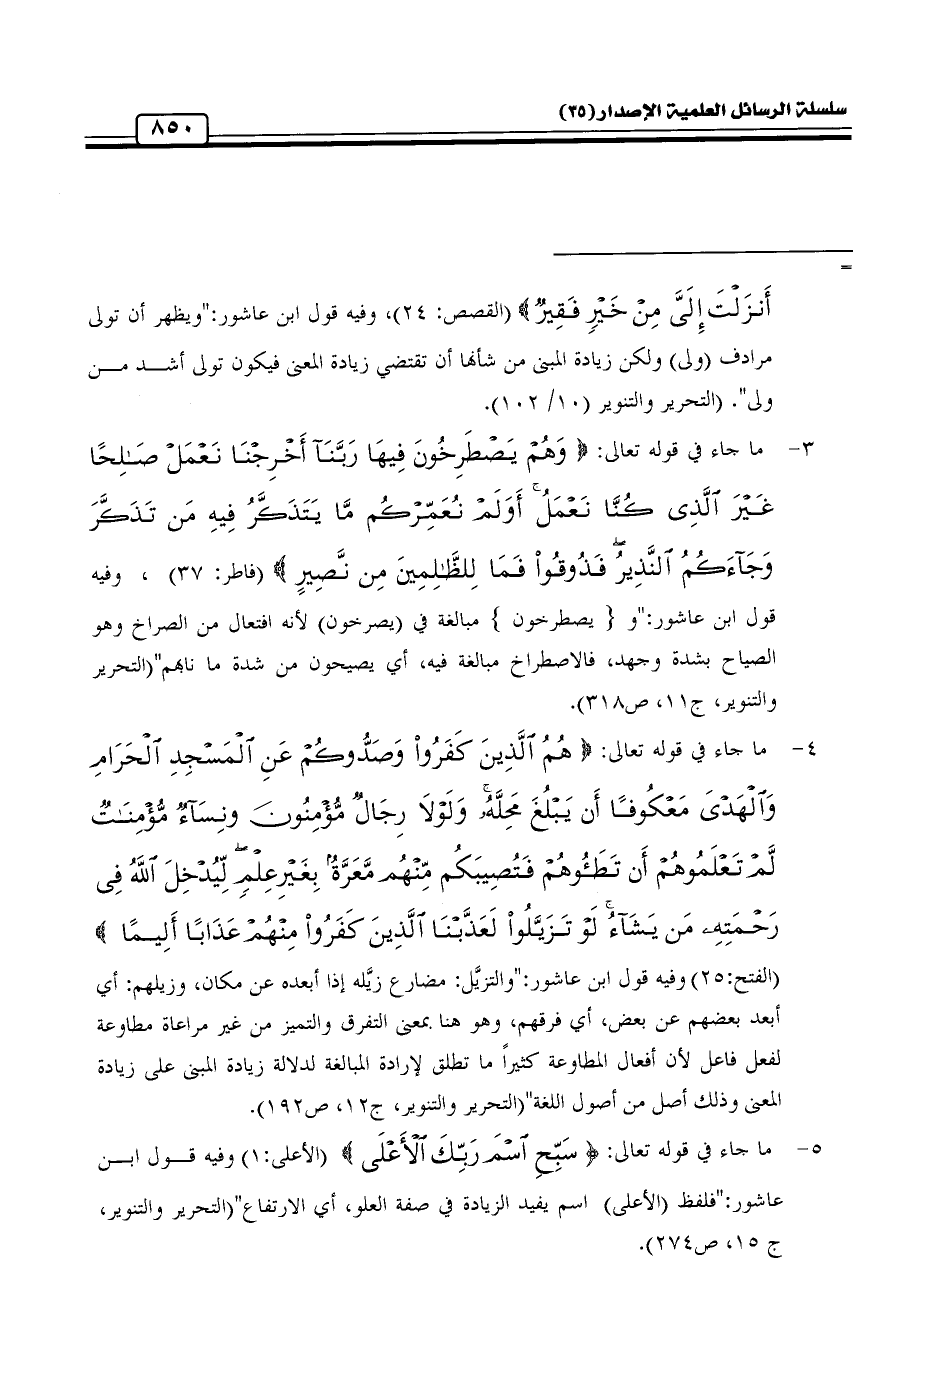 سلسلة الرسائل العلمية الإصدار(٣٥)
٨٥٠
=
أَنزَلْتَ إِلَيَّ مِنْ خَيْرٍ فَقِيرٌ ﴾ (القصص: ٢٤)، وفيه قول ابن عاشور:"ويظهر أن تولى
مرادف (ولى) ولكن زيادة المبنى من شأنها أن تقتضي زيادة المعنى فيكون تولى أشد من
ولى". (التحرير والتنوير (١٠/ ١٠٢).
٣- ما جاء في قوله تعالى: ﴿ وَهُمْ يَصْطَرِخُونَ فِيهَا رَبَّنَآ أَخْرِجْنَا نَعْمَلْ صَـٰلِحًا
غَيْرَ ٱلَّذِى كُنَّا نَعْمَلُ ۚ أَوَلَمْ نُعَمِّرْكُم مَّا يَتَذَكَّرُ فِيهِ مَن تَذَكَّرَ
وَجَآءَكُمُ ٱلنَّذِيرُ ۖ فَذُوقُوا۟ فَمَا لِلظَّـٰلِمِينَ مِن نَّصِيرٍ ﴾ (فاطر: ٣٧) ، وفيه
قول ابن عاشور:"و { يصطرخون } مبالغة في (يصرخون) لأنه افتعال من الصراخ وهو
الصياح بشدة وجهد، فالاصطراخ مبالغة فيه، أي يصيحون من شدة ما نابهم"(التحرير
والتنوير، ج١١، ص٣١٨).
٤- ما جاء في قوله تعالى: ﴿ هُمُ ٱلَّذِينَ كَفَرُوا۟ وَصَدُّوكُمْ عَنِ ٱلْمَسْجِدِ ٱلْحَرَامِ
وَٱلْهَدْىَ مَعْكُوفًا أَن يَبْلُغَ مَحِلَّهُۥ ۚ وَلَوْلَا رِجَالٌ مُّؤْمِنُونَ وَنِسَآءٌ مُّؤْمِنَـٰتٌ
لَّمْ تَعْلَمُوهُمْ أَن تَطَـُٔوهُمْ فَتُصِيبَكُم مِّنْهُم مَّعَرَّةٌۢ بِغَيْرِ عِلْمٍ ۖ لِّيُدْخِلَ ٱللَّهُ فِى
رَحْمَتِهِۦ مَن يَشَآءُ ۚ لَوْ تَزَيَّلُوا۟ لَعَذَّبْنَا ٱلَّذِينَ كَفَرُوا۟ مِنْهُمْ عَذَابًا أَلِيمًا ﴾
(الفتح:٢٥) وفيه قول ابن عاشور:"والتزيَّل: مضارع زيَّله إذا أبعده عن مكان، وزيلهم: أي
أبعد بعضهم عن بعض، أي فرقهم، وهو هنا بمعنى التفرق والتميز من غير مراعاة مطاوعة
لفعل فاعل لأن أفعال المطاوعة كثيراً ما تطلق لإرادة المبالغة لدلالة زيادة المبنى على زيادة
المعنى وذلك أصل من أصول اللغة"(التحرير والتنوير، ج١٢، ص١٩٢).
٥- ما جاء في قوله تعالى: ﴿ سَبِّحِ ٱسْمَ رَبِّكَ ٱلْأَعْلَى ﴾ (الأعلى:١) وفيه قول ابن
عاشور:"فلفظ (الأعلى) اسم يفيد الزيادة في صفة العلو، أي الارتفاع"(التحرير والتنوير،
ج ١٥، ص٢٧٤).